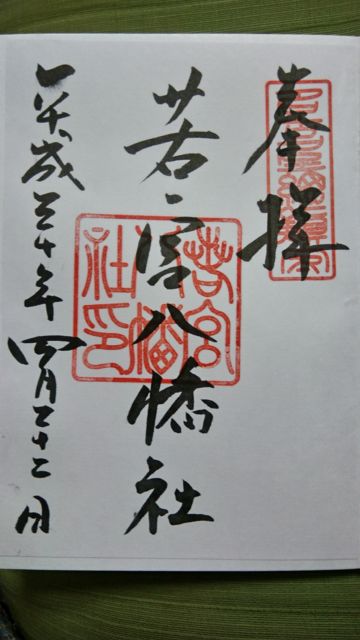 奉拝
若宮八幡社
若宮八幡社印
平成三十年四月二十二日